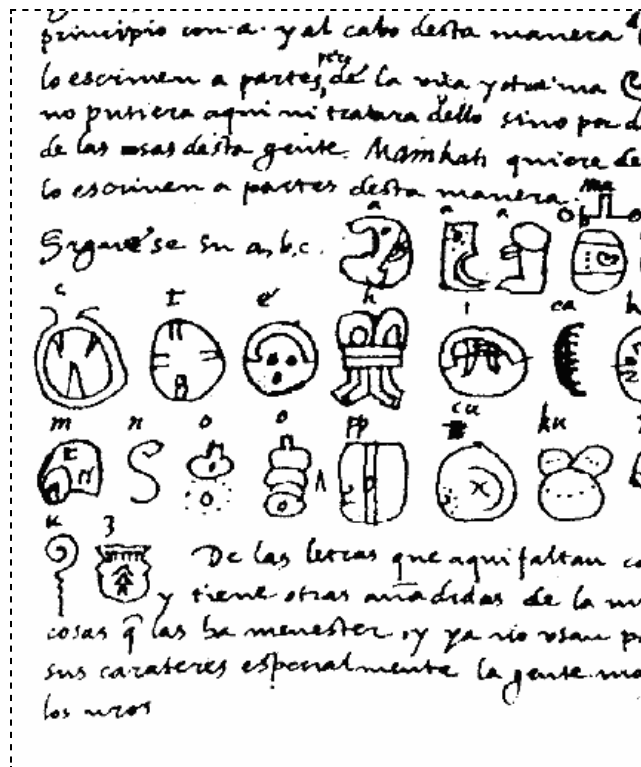 principio con .a. y al cabo desta manera
lo escriven a partes, pero de la una y otra ma
no pusiera aqui ni tratara dello sino por d
de las cosas desta gente. Mainkati quiere de
lo escriven a partes desta manera. ma
Siguese su a, b, c. a a a b o
c t é h i ca k
m n o o pp cu ku
u z De las letras que aqui faltan ca
y tiene otras añadidas de la nu
cosas q̃ las ha menester, y ya no usan p
sus carateres especialmente la gente mo
los nros